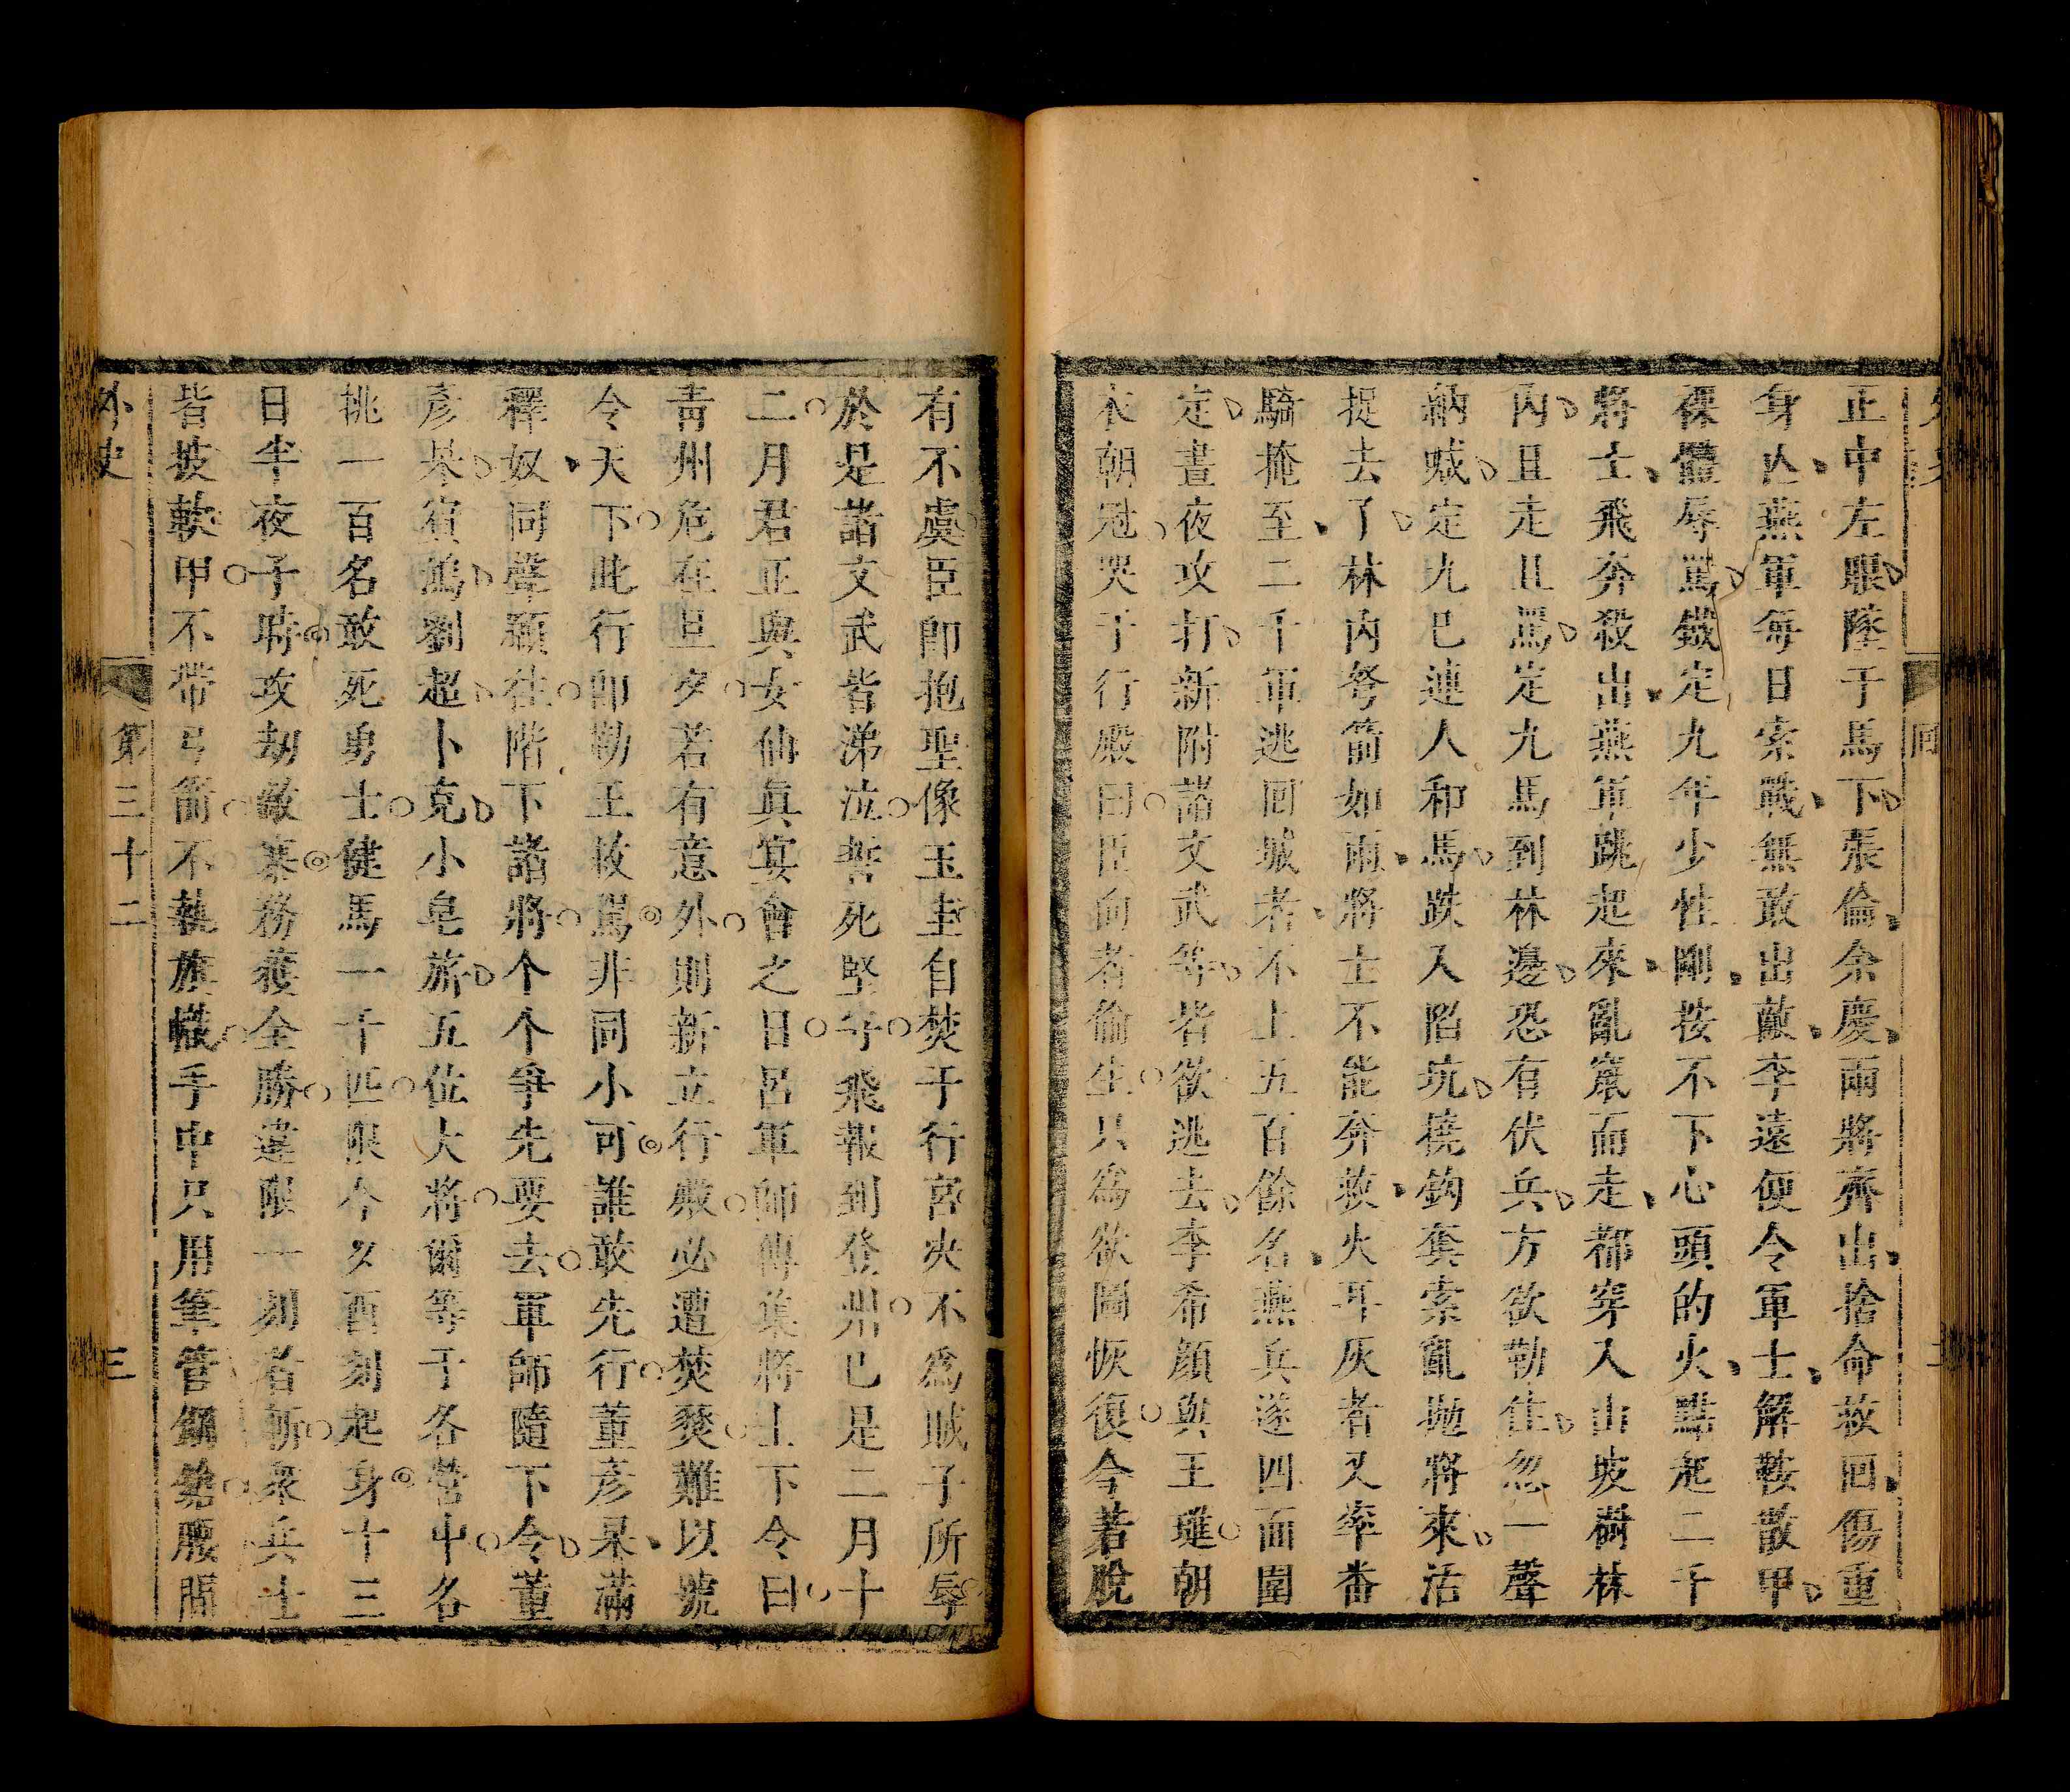 正中左眼墜于馬下張倫余慶兩將齊出捨命救回傷重
身亾燕軍每日索戰無敢出敵李遠便令軍士解鞍散甲
裸體辱罵鐵定九年少性剛按不下心頭的火點起二千
將士飛奔殺出燕軍跳起來亂竄而走都穿入山坡樹林
內且走且罵定九馬到林邊恐有伏兵方欲勒住忽一聲
納喊定九已連人和馬跌入陷坑撓鈎套索亂拋將來活
捉去了林內弩箭如雨將士不能奔救火耳灰者又率番
騎掩至二千軍逃回城者不上五百餘名燕兵遂四面圍
定晝夜攻打新附諸文武等皆欲逃去李希顔與王璡朝
衣朝冠哭于行殿曰臣向者偷生只為欲圖恢復今若脫
有不虞臣卽抱聖像玉圭自焚于行宮决不爲賊子所辱
於是諸文武皆涕泣誓死堅守飛報到登州已是二月十
二月君正與女仙眞宴會之日呂軍師傳集將士下令曰
青州危在旦夕若有意外則新立行殿必遭焚燹難以號
令天下此行卽勤王救駕非同小可誰敢先行董彥杲滿
釋奴同聲願往階下諸將个个爭先要去軍師隨下令董
彥杲賓鴻劉超卜克小皂旂五位大將爾等于各營中各
挑一百名敢死勇士健馬一千匹限今夕酉刻起身十三
日半夜子時攻刼敵寨務獲全勝違限一刻者斬衆兵士
皆披軟甲不帶弓箭不執旗幟手中只用筆管鎗腰間
外史
第三十二
三